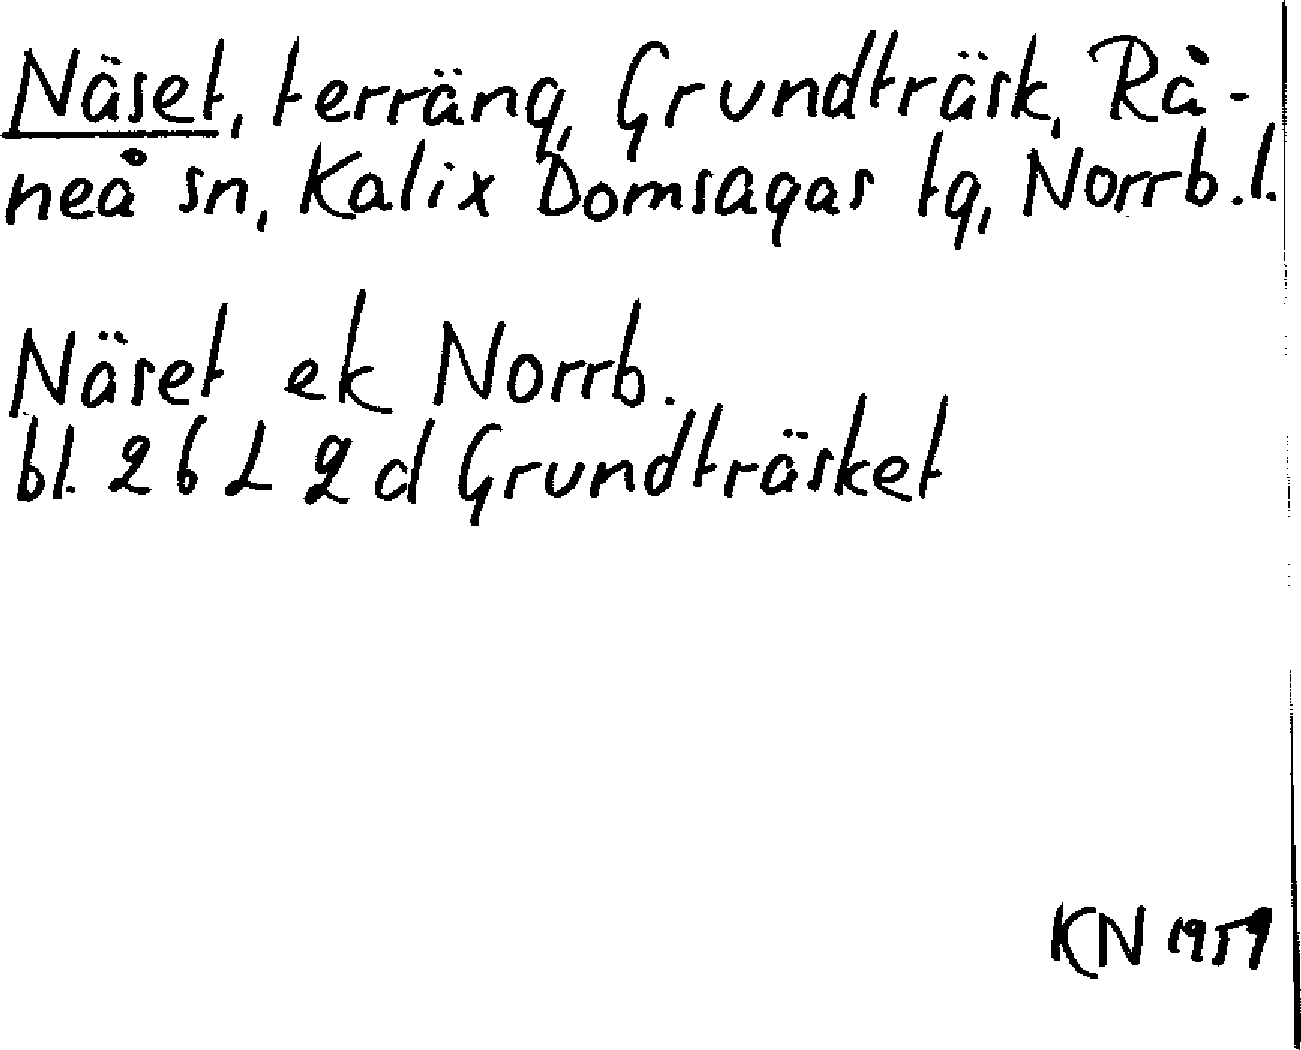 Näset, terräng, Grundträsk, Rå-
neå sn, Kalix Domsagas tg, Norrb.l.
Näset ek Norrb.
bl. 26 L 2 d Grundträsket
KN 1959